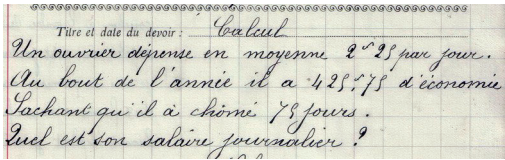 Titre et date du devoir : Calcul
Un ouvrier dépense en moyenne 2f25 par jour.
Au bout de l'année il a 425f75 d'économie
Sachant qu'il a chômé 75 jours.
Quel est son salaire journalier ?